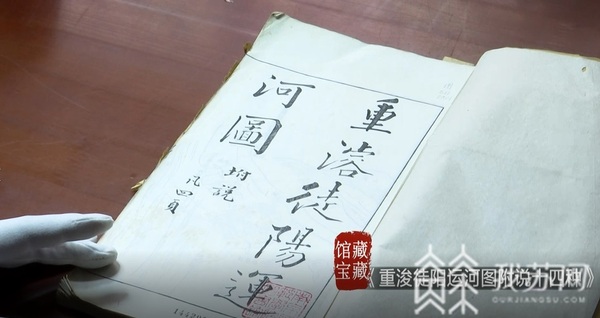 重濬徒陽運
河圖
坿説
凡四頁
馆藏
宝藏
《重浚徒阳运河图附说十四种》
我苏网
OURJIANGSU.COM